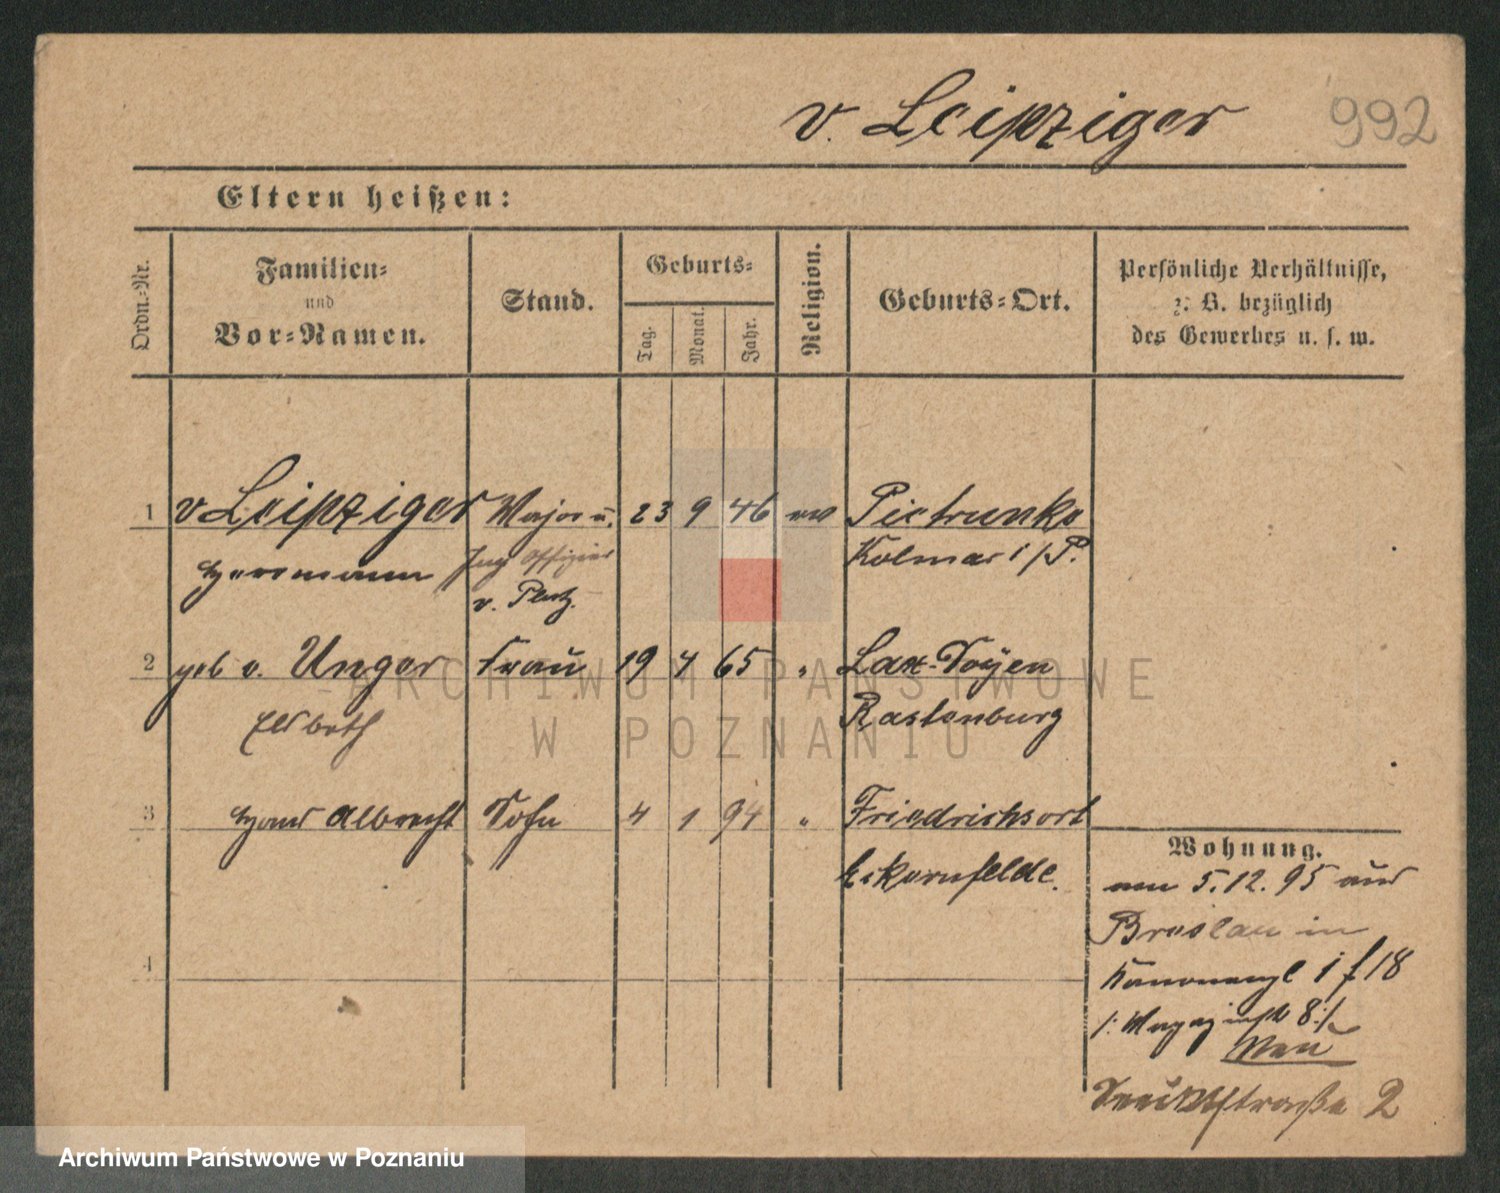 v. Leipziger
992
Eltern heißen:
Ordn.-Nr.
Familien-
und
Vor-Namen.
Stand.
Geburts-
Tag.
Monat.
Jahr.
Religion.
Geburts-Ort.
Persönliche Verhältnisse,
z. B. bezüglich
des Gewerbes u. s. w.
1 v Leipziger Major u. 23 9 46 ev Pietrunke
Herrmann Ing Offizier Kolmar i/P.
v. Platz.
2 geb v. Unger Frau 19 4 65 " Lax-Doyen
Elsbeth Rastenburg
3 Hans Albrecht Sohn 4 1 94 " Friedrichsort
Eckernfelde.
4
Wohnung.
am 5.12.95 aus
Breslau in
Kanonenpl 1 f 18
/: Magazinstr 8 :/
Neu
straße 2
ARCHIWUM PAŃSTWOWE
W POZNANIU
Archiwum Państwowe w Poznaniu